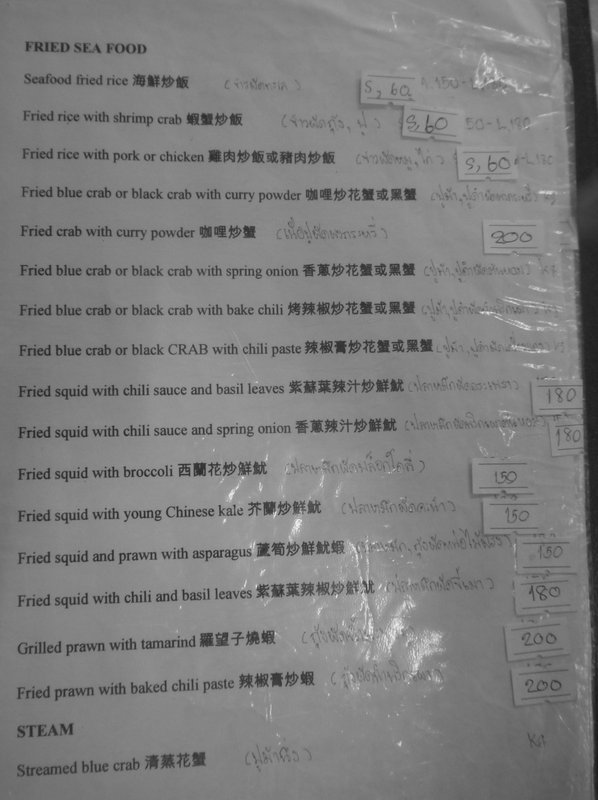 FRIED SEA FOOD
Seafood fried rice 海鮮炒飯 (ข้าวผัดทะเล) S, 60 150-L
Fried rice with shrimp crab 蝦蟹炒飯 (ข้าวผัดกุ้ง, ปู) S, 60 50-L.180
Fried rice with pork or chicken 雞肉炒飯或豬肉炒飯 (ข้าวผัดหมู, ไก่) S, 60 -L.180
Fried blue crab or black crab with curry powder 咖哩炒花蟹或黑蟹
Fried crab with curry powder 咖哩炒蟹 (เนื้อปูผัดผงกระหรี่) 200
Fried blue crab or black crab with spring onion 香蔥炒花蟹或黑蟹
Fried blue crab or black crab with bake chili 烤辣椒炒花蟹或黑蟹
Fried blue crab or black CRAB with chili paste 辣椒膏炒花蟹或黑蟹
Fried squid with chili sauce and basil leaves 紫蘇葉辣汁炒鮮魷 180
Fried squid with chili sauce and spring onion 香蔥辣汁炒鮮魷 180
Fried squid with broccoli 西蘭花炒鮮魷 150
Fried squid with young Chinese kale 芥蘭炒鮮魷 (ปลาหมึกผัดคะน้า) 150
Fried squid and prawn with asparagus 蘆筍炒鮮魷蝦 150
Fried squid with chili and basil leaves 紫蘇葉辣椒炒鮮魷 180
Grilled prawn with tamarind 羅望子燒蝦 200
Fried prawn with baked chili paste 辣椒膏炒蝦 200
STEAM
Streamed blue crab 清蒸花蟹 (ปูม้านึ่ง)